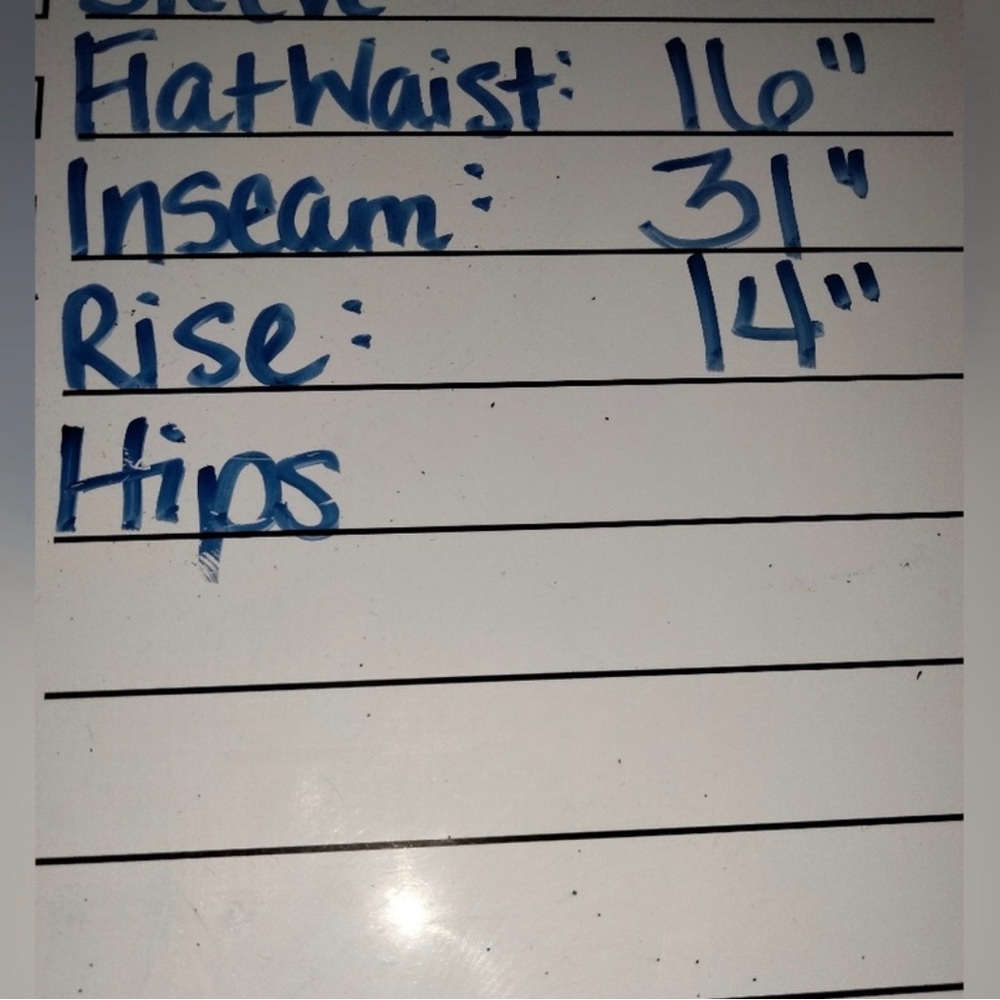 Flat Waist: 16"
Inseam: 31"
Rise: 14"
Hips